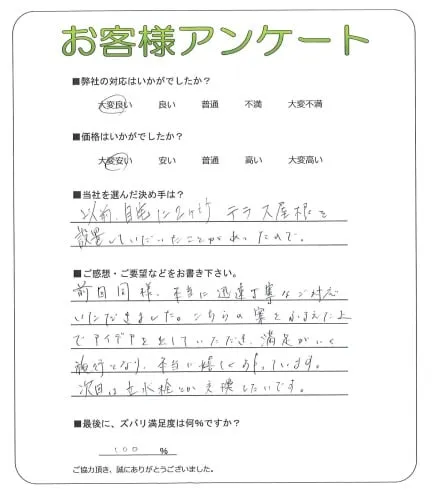 お客様アンケート
■弊社の対応はいかがでしたか？
大変良い 良い 普通 不満 大変不満
■価格はいかがでしたか？
大変安い 安い 普通 高い 大変高い
■当社を選んだ決め手は？
以前、自宅に2ヶ所 テラス屋根を
設置していただいたことがあったので。
■ご感想・ご要望などをお書き下さい。
前回同様、本当に迅速丁寧なご対応
いただきました。こちらの案をふまえた上
でアイデアを出していただき、満足がいく
施行となり、本当に嬉しく思っています。
次回は立水栓とか交換したいです。
■最後に、ズバリ満足度は何％ですか？
100 ％
ご協力頂き、誠にありがとうございました。